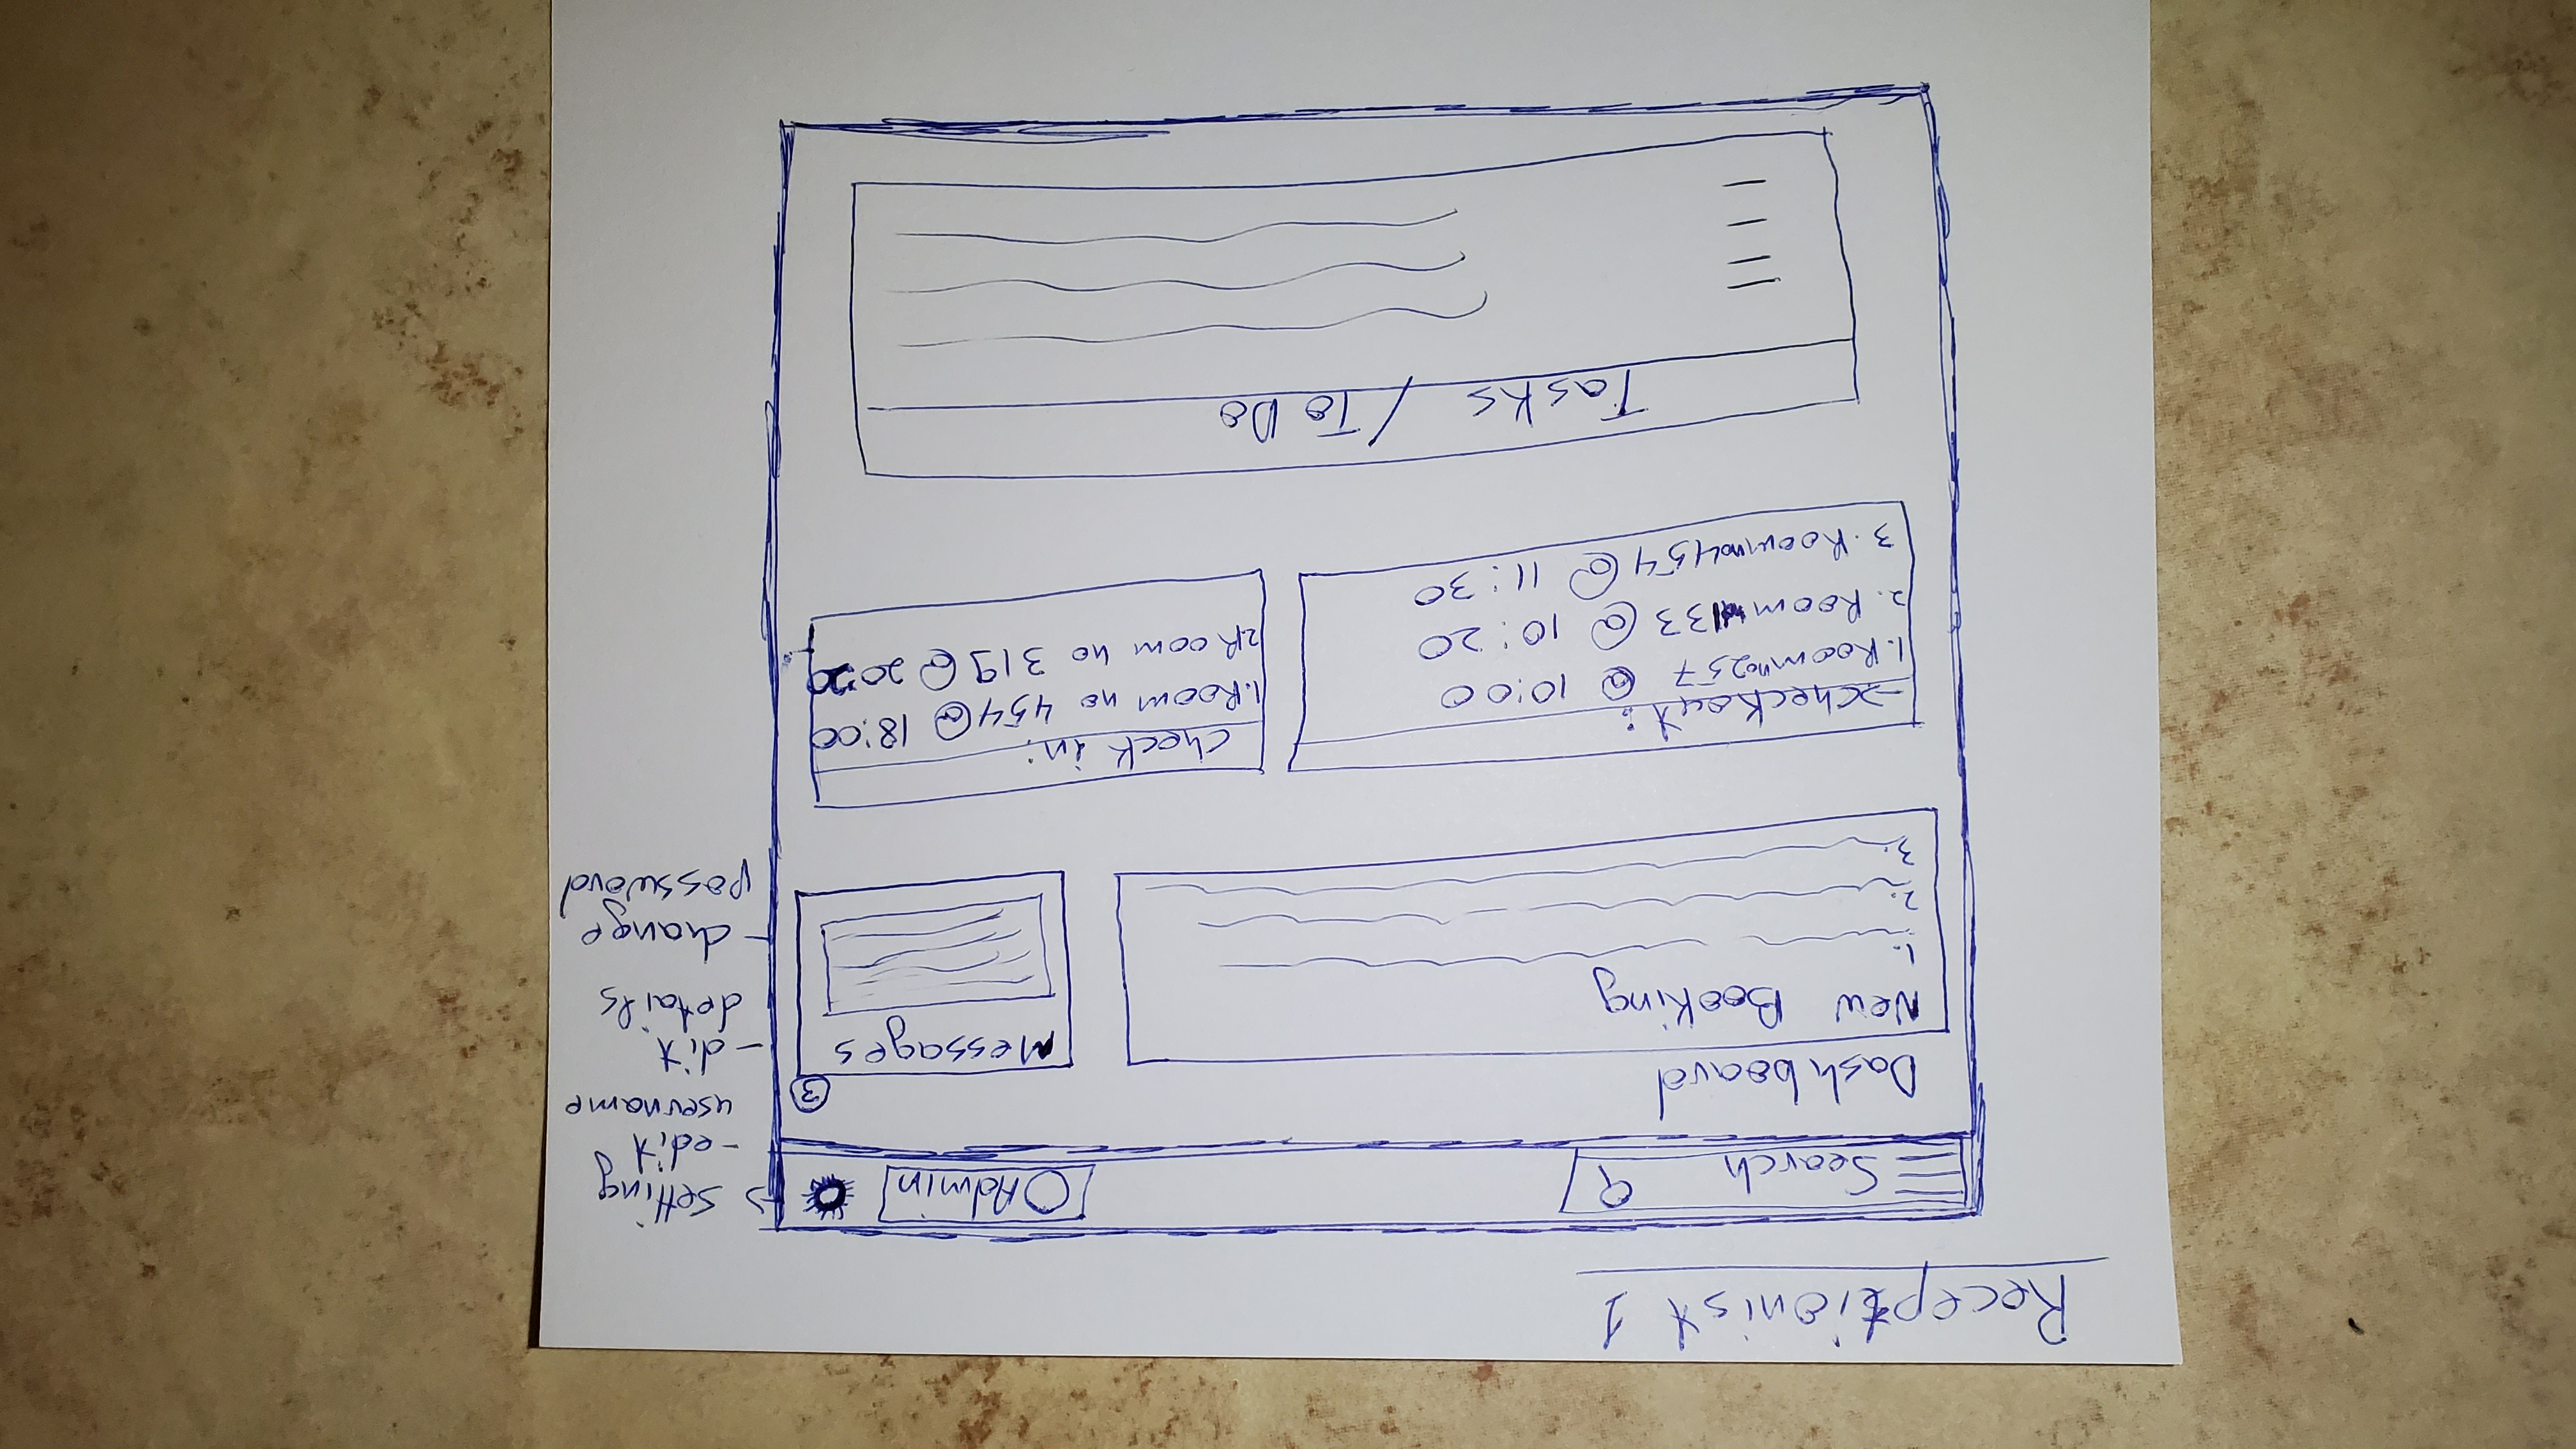 Receptionist 1
Search
Admin
Setting
- edit
username
- dit
details
- change
password
Dashboard
New Booking
1.
2.
3.
Messages
3
→ Checkout:
1. Room no 257 @ 10:00
2. Room 133 @ 10:20
3. Room no 454 @ 11:30
Check in:
1. Room no 454 @ 18:00
2. Room no 319 @
Tasks / To Do